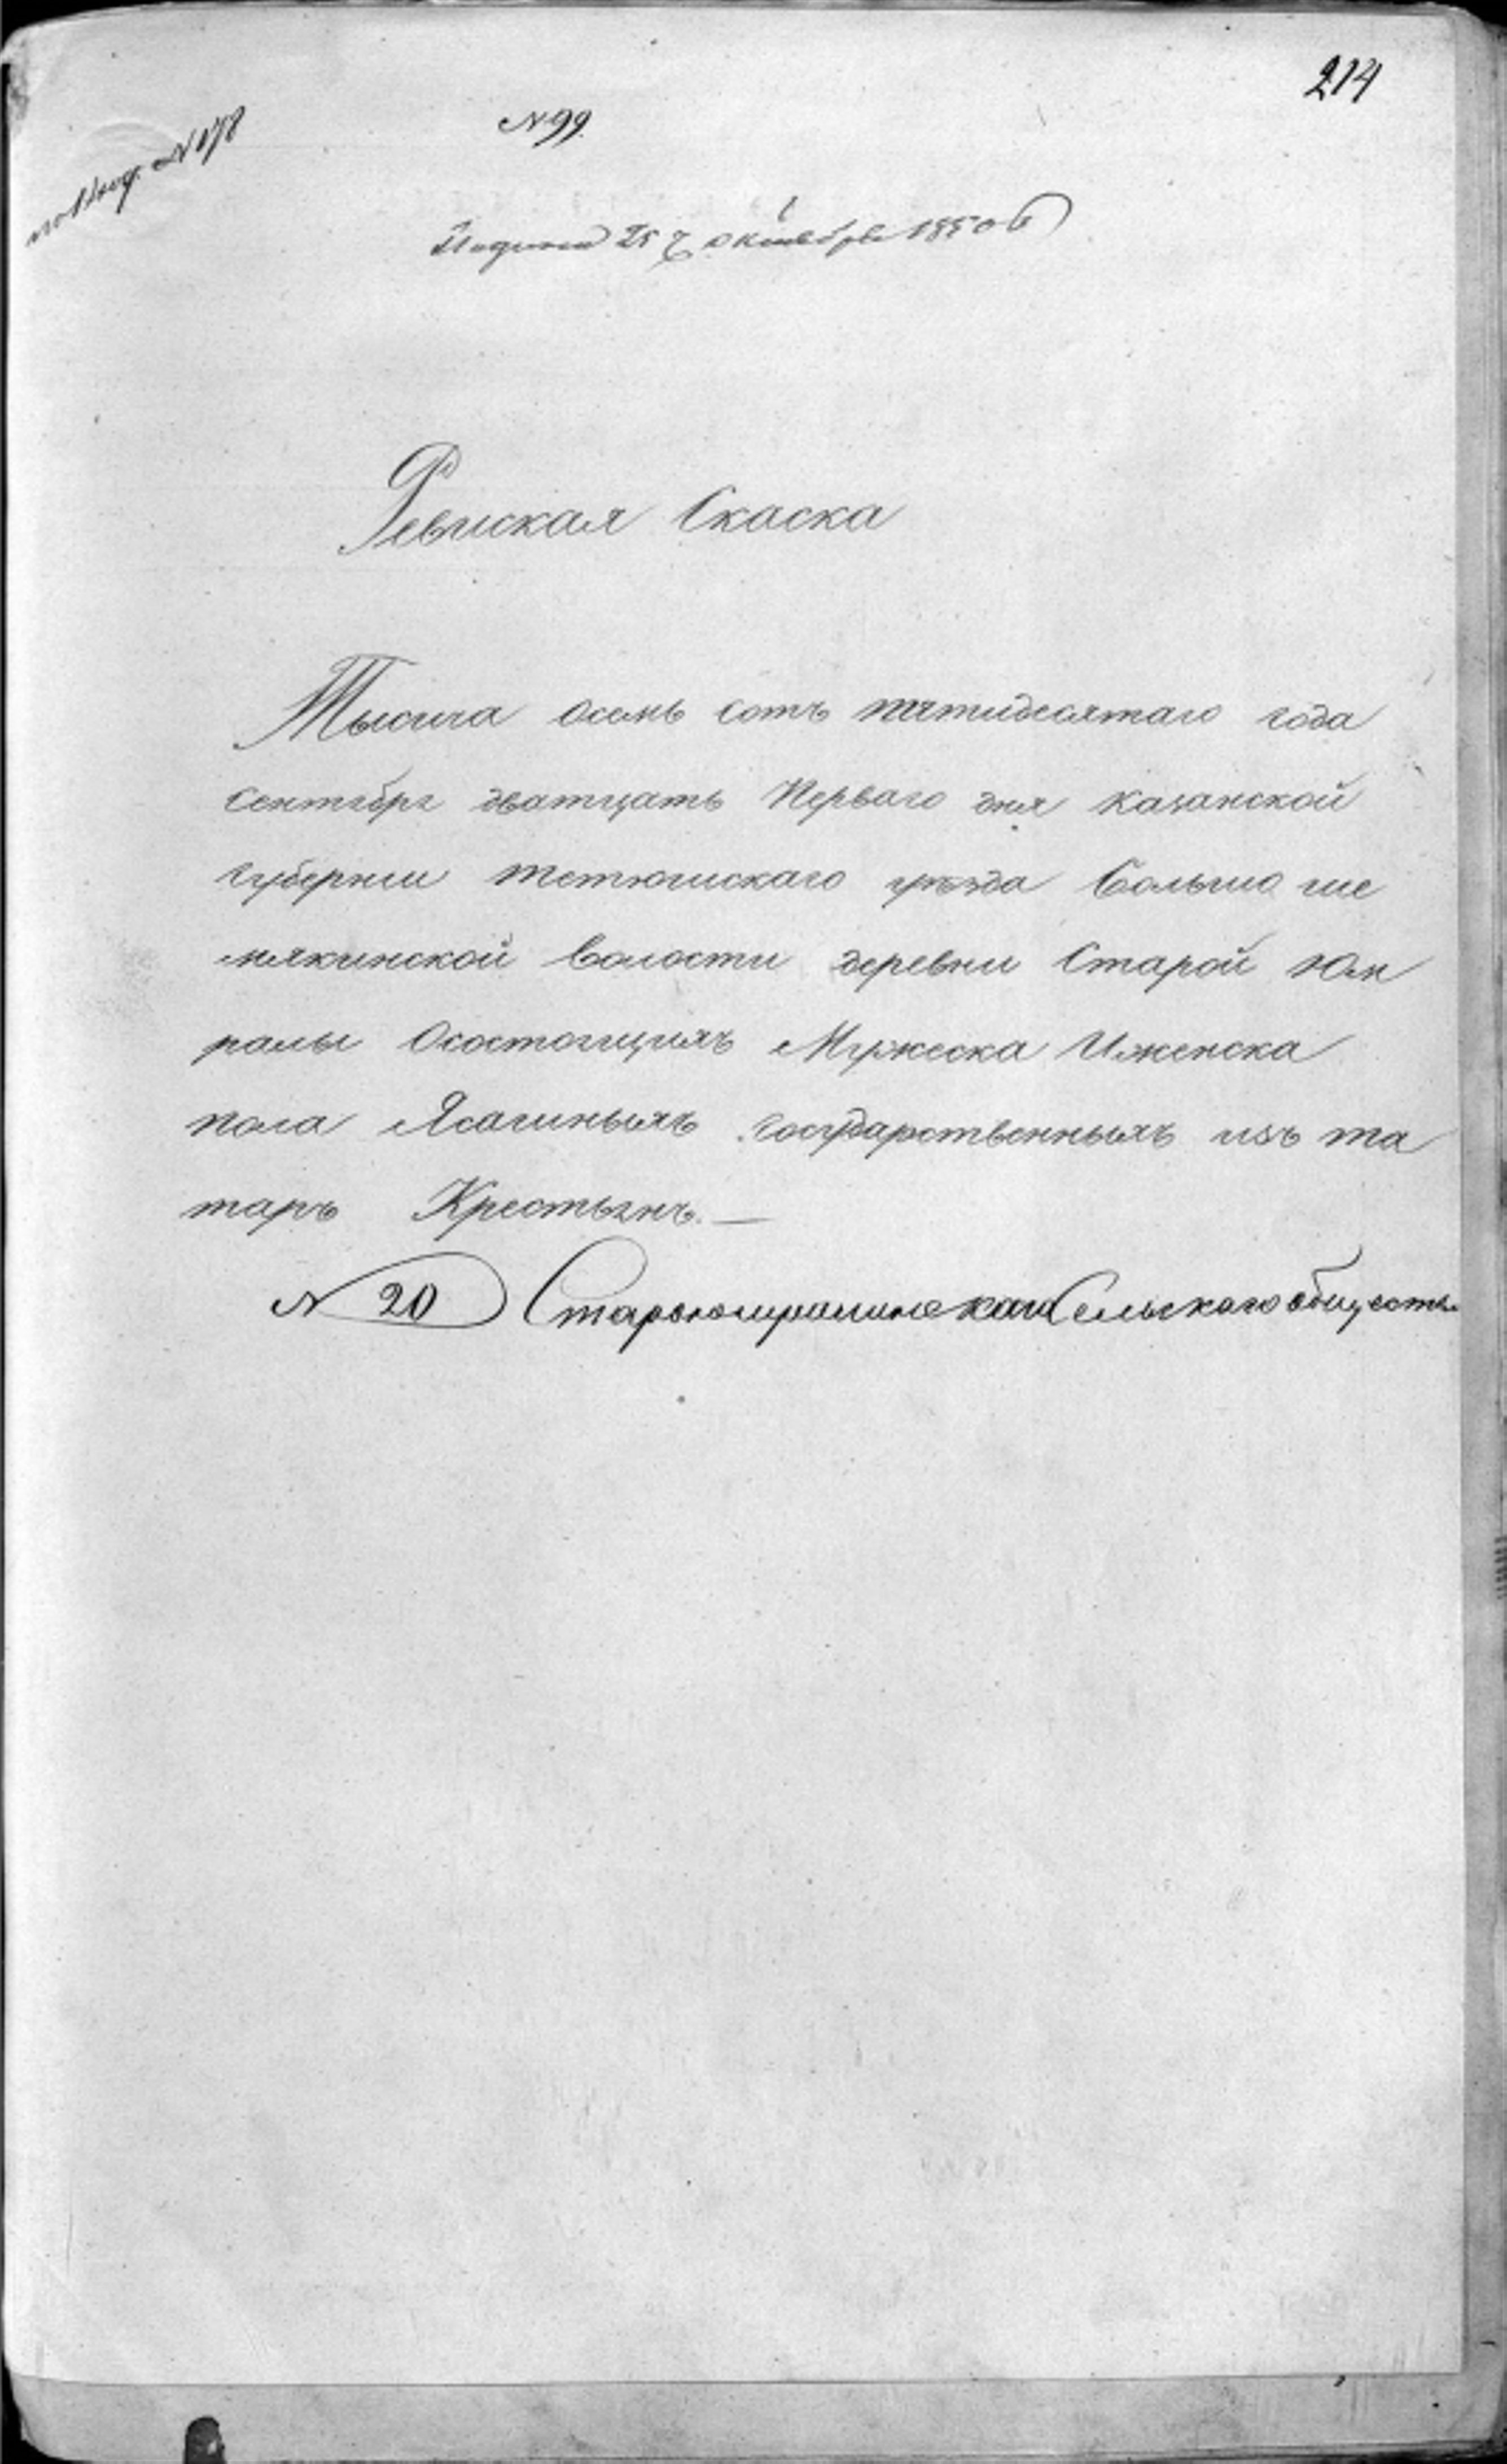 214
№ 99
по 1 № 178
Подана 25 октября 1850 г
Ревиская Скаска
Тысяча осемь сотъ пятидесятаго года
сентября дватцать Перваго дня казанской
губернии тетюшскаго уѣзда Большо ше
мякинской волости деревни Старой Юм
ралы Осостоящихъ Мужеска Иженска
пола Ясашныхъ государственныхъ изъ та
таръ Крестьянъ. —
№ 20 Сельскаго общества